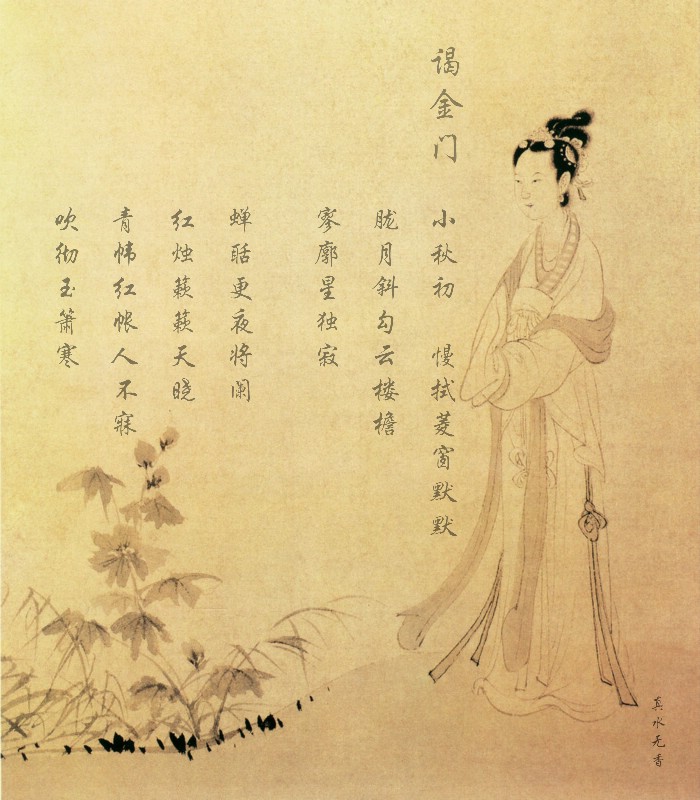 谒金门
小秋初 慢拭菱窗默默
胧月斜勾云楼檐
寥廓星独寂
蝉聒更夜将阑
红烛簌簌天晓
青帏红帐人不寐
吹彻玉箫寒
真水无香